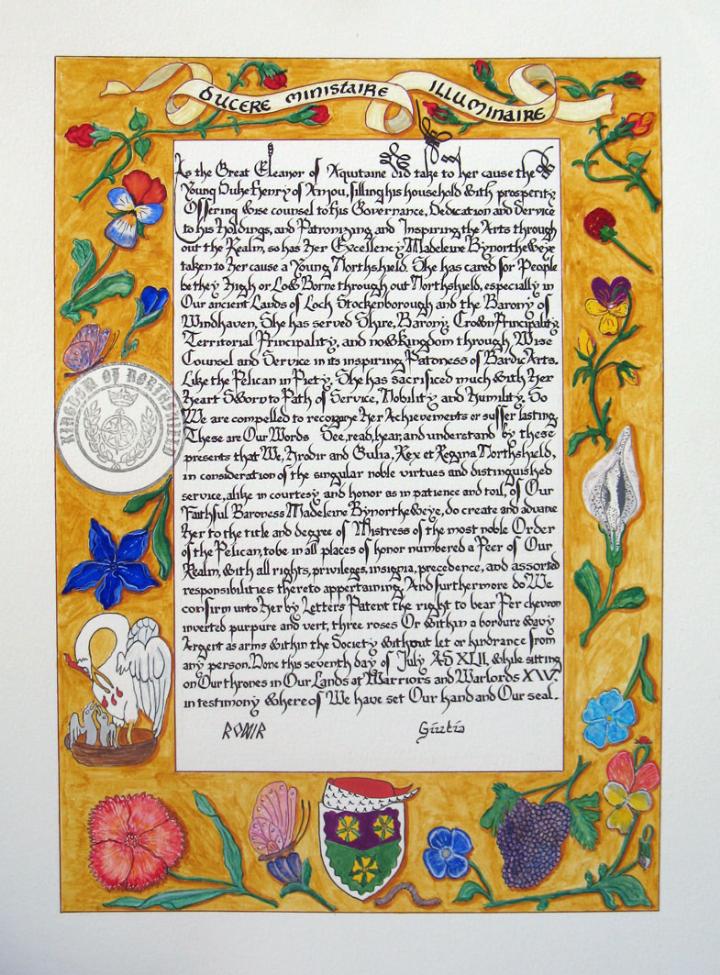 DUCERE MINISTAIRE ILLUMINAIRE
As the Great Eleanor of Aquitaine did take to her cause the
Young Duke Henry of Anjou, filling his household with prosperity
Offering wise counsel to his Governance, Dedication and Service
to his Holdings, and Patronizing and Inspiring the Arts through
out the Realm, so has Her Excellency Madeleine Bynortheweye
taken to Her cause a Young Northshield. She has cared for People
be they High or Low Borne through out Northshield, especially in
Our ancient Lands of Loch Stockenborough and the Barony of
Windhaven. She has served Shire, Barony, Crown Principality,
Territorial Principality, and now Kingdom through Wise
Counsel and Service in its inspiring Patoness of Bardic Arts.
Like the Pelican in Piety, She has sacrificed much with Her
Heart Sworn to Path of Service, Nobility and Humility. So
We are compelled to recognze Her Achievements or suffer lasting
These are Our Words See, read, hear, and understand by these
presents that We, Hrodir and Giulia, Rex et Regina Northshield,
in consideration of the singular noble virtues and distinguished
service, alike in courtesy and honor as in patience and toil, of Our
Faithful Baroness Madeleine Bynortheweye, do create and advane
Her to the title and degree of Mistress of the most noble Order
of the Pelican, to be in all places of honor numbered a Peer of Our
Realm, with all rights, privileges, insignia, precedence, and assorted
responsibilities thereto appertaining. And furthermore do We
confirm unto Her by Letters Patent the right to bear Per chevron
inverted purpure and vert, three roses Or within a bordure wavy
Argent as arms within the Society without let or hindrance from
any person. Done this seventh day of July AS XLII, while sitting
on Our thrones in Our Lands at Warriors and Warlords XV.
in testimony whereof We have set Our hand and Our seal.
Giulia
KINGDOM OF NORTHSHIELD